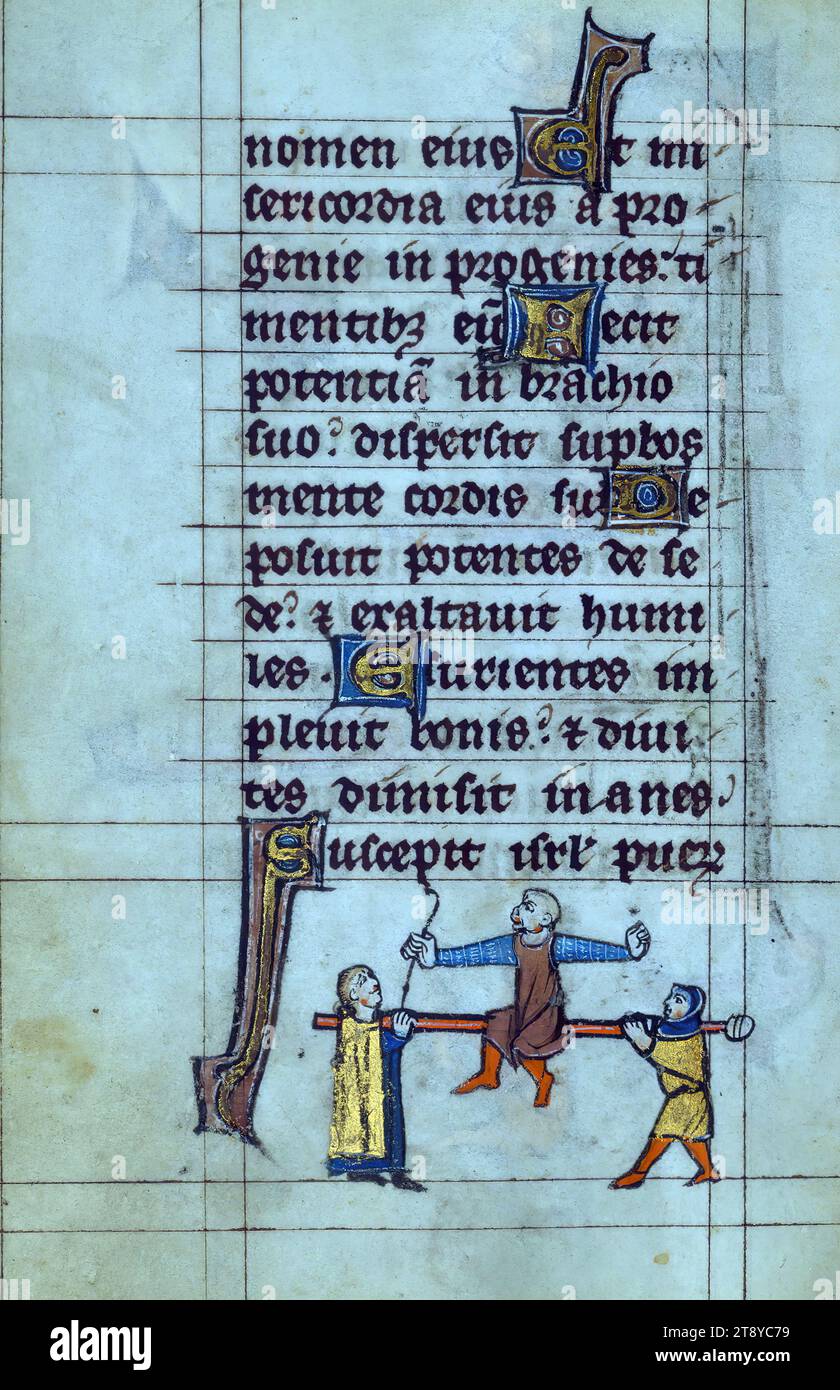 nomen eius Et mi
sericordia eius a pro
genie in progenies: ti
mentibꝫ eū Fecit
potentiā in brachio
suo? dispersit supbos
mente cordis sui De
posuit potentes de se
de? ⁊ exaltauit humi
les. Esurientes im
pleuit bonis? ⁊ diui
tes dimisit inanes.
Suscepit isrl' puerꝫ
alamy
Image ID: 2T8YC79
www.alamy.com